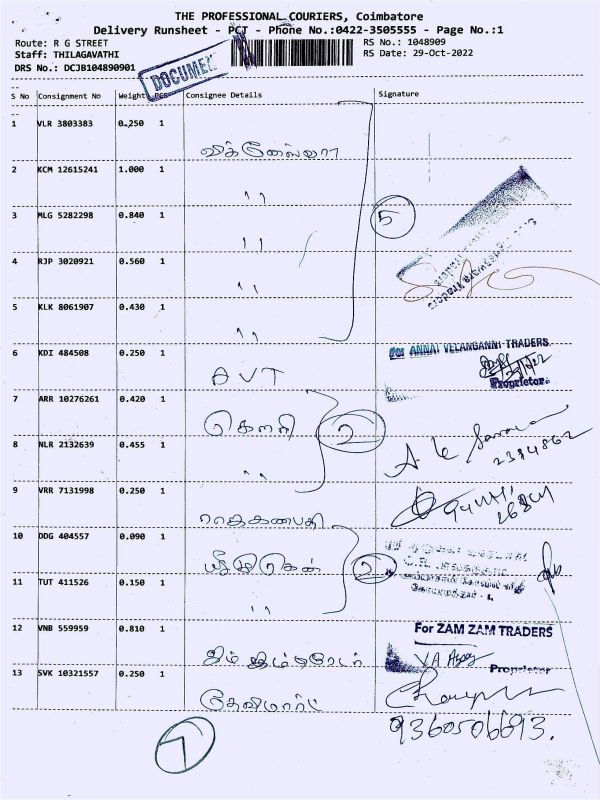 THE PROFESSIONAL COURIERS, Coimbatore
Delivery Runsheet - PCT - Phone No.:0422-3505555 - Page No.:1
Route: R G STREET
RS No.: 1048909
Staff: THILAGAVATHI
RS Date: 29-Oct-2022
DRS No.: DCJB104890901
DOCUMEN
S No Consignment No Weight PCS Consignee Details Signature
1 VLR 3803383 0.250 1
விக்னேஸ்வரா
2 KCM 12615241 1.000 1
" 
3 MLG 5282298 0.840 1
" 
5
4 RJP 3020921 0.560 1
" 
5 KLK 8061907 0.430 1
" 
6 KDI 484508 0.250 1
AVT
ANNAI VELANGANNI TRADERS
Proprietor
7 ARR 10276261 0.420 1
கௌரி
2
8 NLR 2132639 0.455 1
" 
9 VRR 7131998 0.250 1
10 DDG 404557 0.090 1
2
11 TUT 411526 0.150 1
" 
12 VNB 559959 0.810 1
For ZAM ZAM TRADERS
Proprietor
13 SVK 10321557 0.250 1
தேவிமார்ட்
9360506693.
7